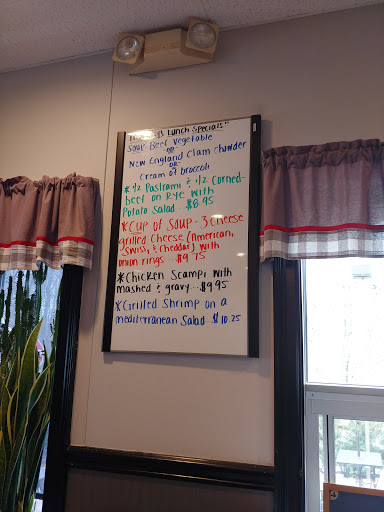 Lunch Specials"
Soup-Beef Vegetable
OR
New England Clam Chowder
OR
Cream of Broccoli
* ½ Pastrami & ½ Corned-
beef on Rye with
Potato Salad $8.95
* Cup of Soup - 3 Cheese
grilled Cheese (American,
Swiss, & Cheddar) with
onion rings ... $9.75
* Chicken Scampi with
mashed & gravy ... $9.95
* Grilled Shrimp on a
mediterranean Salad ... $10.25